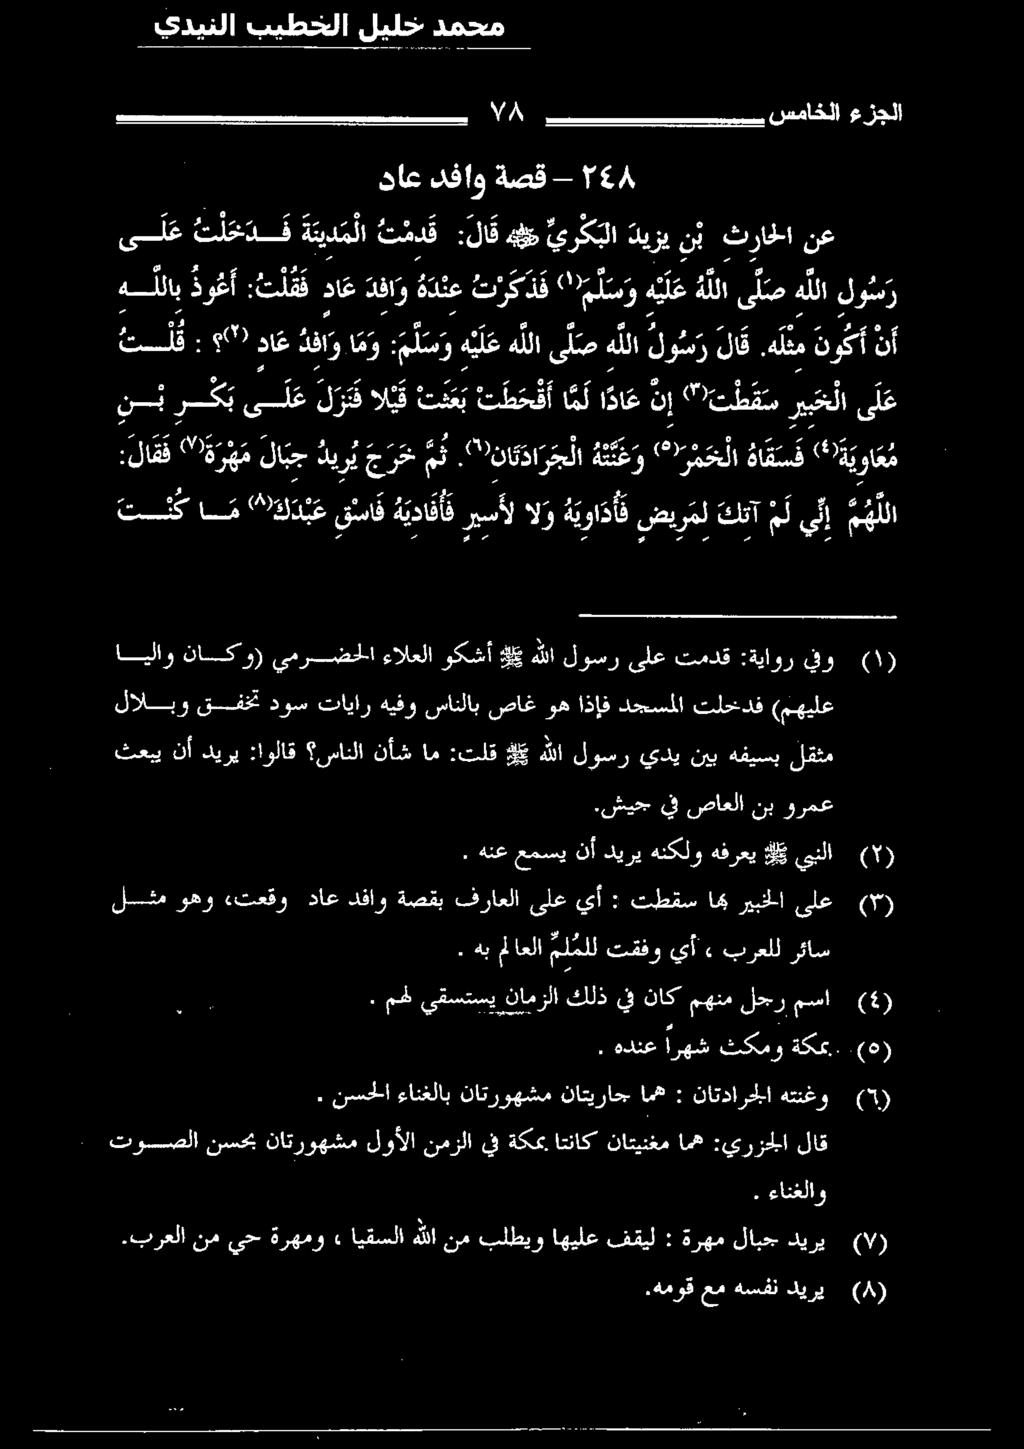 محمد خليل الخطيب النيدي
الجزء الخامس ٧٨
٢٤٨ – قصة وافد عاد
عن الحارث بْنِ يزيدَ الْبَكْرِيِّ ﷺ قَالَ: قَدِمْتُ الْمَدِينَةَ فَدَخَلْتُ عَلَى
رَسُولِ اللَّهِ صَلَّى اللَّهُ عَلَيْهِ وَسَلَّمَ(١) فَذَكَرْتُ عِنْدَهُ وَافِدَ عَادٍ فَقُلْتُ: أَعُوذُ بِاللَّهِ
أَنْ أَكُونَ مِثْلَه. قَالَ رَسُولُ اللَّهِ صَلَّى اللَّه عَلَيْهِ وَسَلَّمَ: وَمَا وَافِدُ عَادٍ (٢)؟ : قُلْتُ
عَلَى الْخَبِيرِ سَقَطْتَ(٣) إِنَّ عَادًا لَمَّا أَقْحَطَتْ بَعَثَتْ قَيْلا فَنَزَلَ عَلَى بَكْرِ بْنِ
مُعَاوِيَةَ(٤) فَسَقَاهُ الْخَمْرَ(٥) وَغَنَّتْهُ الْجَرَادَتَانِ(٦). ثُمَّ خَرَجَ يُرِيدُ جِبَالَ مَهْرَةَ(٧) فَقَالَ:
اللَّهُمَّ إِنِّي لَمْ آتِكَ لِمَرِيضٍ فَأُدَاوِيَهُ وَلا لأَسِيرٍ فَأُفَادِيَهُ فَاسْقِ عَبْدَكَ(٨) مَا كُنْتَ
(١) وفي رواية: قدمت على رسول الله ﷺ أشكو العلاء الحضرمي (وكان واليا
عليهم) فدخلت المسجد فإذا هو غاص بالناس وفيه رايات سود تخفق وبلال
مثقل بسيفه بين يدي رسول الله ﷺ قلت: ما شأن الناس؟ قالوا: يريد أن يبعث
عمرو بن العاص في جيش.
(٢) النبي ﷺ يعرفه ولكنه يريد أن يسمع عنه .
(٣) على الخبير بها سقطت : أي على العارف بقصة وافد عاد وقعت، وهو مثل
سائر للعرب ، أي وفقت للمُلِمِّ العالم به .
(٤) اسم رجل منهم كان في ذلك الزمان يستسقي لهم .
(٥) بمكة ومكث شهراً عنده .
(٦) وغنته الجرادتان : هما جاريتان مشهورتان بالغناء الحسن .
قال الجزري: هما مغنيتان كانتا بمكة في الزمن الأول مشهورتان بحسن الصوت
والغناء .
(٧) يريد جبال مهرة : ليقف عليها ويطلب من الله السقيا ، ومهرة حي من العرب.
(٨) يريد نفسه مع قومه.